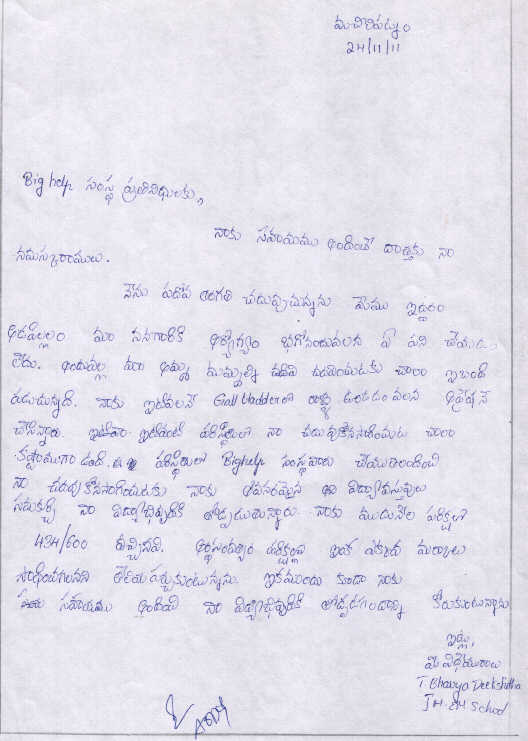 మచిలీపట్నం
24/11/11
Big help సంస్థ ప్రతినిధులకు,
నాకు సహాయము అందించే దాతకు నా
నమస్కారములు.
నేను పదోవ తరగతి చదువుచున్నాను మేము ఇద్దరం
ఆడపిల్లలం మా నాన్నగారికి ఆరోగ్యం బాగోనందువలన ఏ పని చేయుట
లేదు. అందువల్ల మా అమ్మ మమ్మల్ని చదివించుటకు చాలా ఇబ్బంది
పడుచున్నది. నాకు ఇటీవలనే Gall bladder లో రాళ్ళు ఉండటం వలన ఆపరేషన్
చేసినారు. ఇటువంటి పరిస్థితిలో నా చదువుకొనసాగించుట చాలా
కష్టముగా ఉంది. ఈ పరిస్థితిలో Bighelp సంస్థవారు చేయూతనందించి
నా చదువు కొనసాగించుటకు నాకు అవసరమైన విద్యావస్తువులు
సమకూర్చి నా విద్యాభివృద్ధికి తోడ్పడుతున్నారు. నాకు మూడునెలల పరీక్షలో
434/600 వచ్చినవి. అర్ధసంవత్సరం పరీక్షల్లో ఇంకా ఎక్కువ మార్కులు
సాధించగలనని తెలియపర్చుకుంటున్నాను. ఇకముందు కూడా నాకు
సహాయము అందించి నా విద్యాభివృద్ధికి తోడ్పడగలందులకు కోరుకుంటున్నాను
ఇట్లు,
మీ విధేయురాలు
T. Bhavya Deekshitha
School